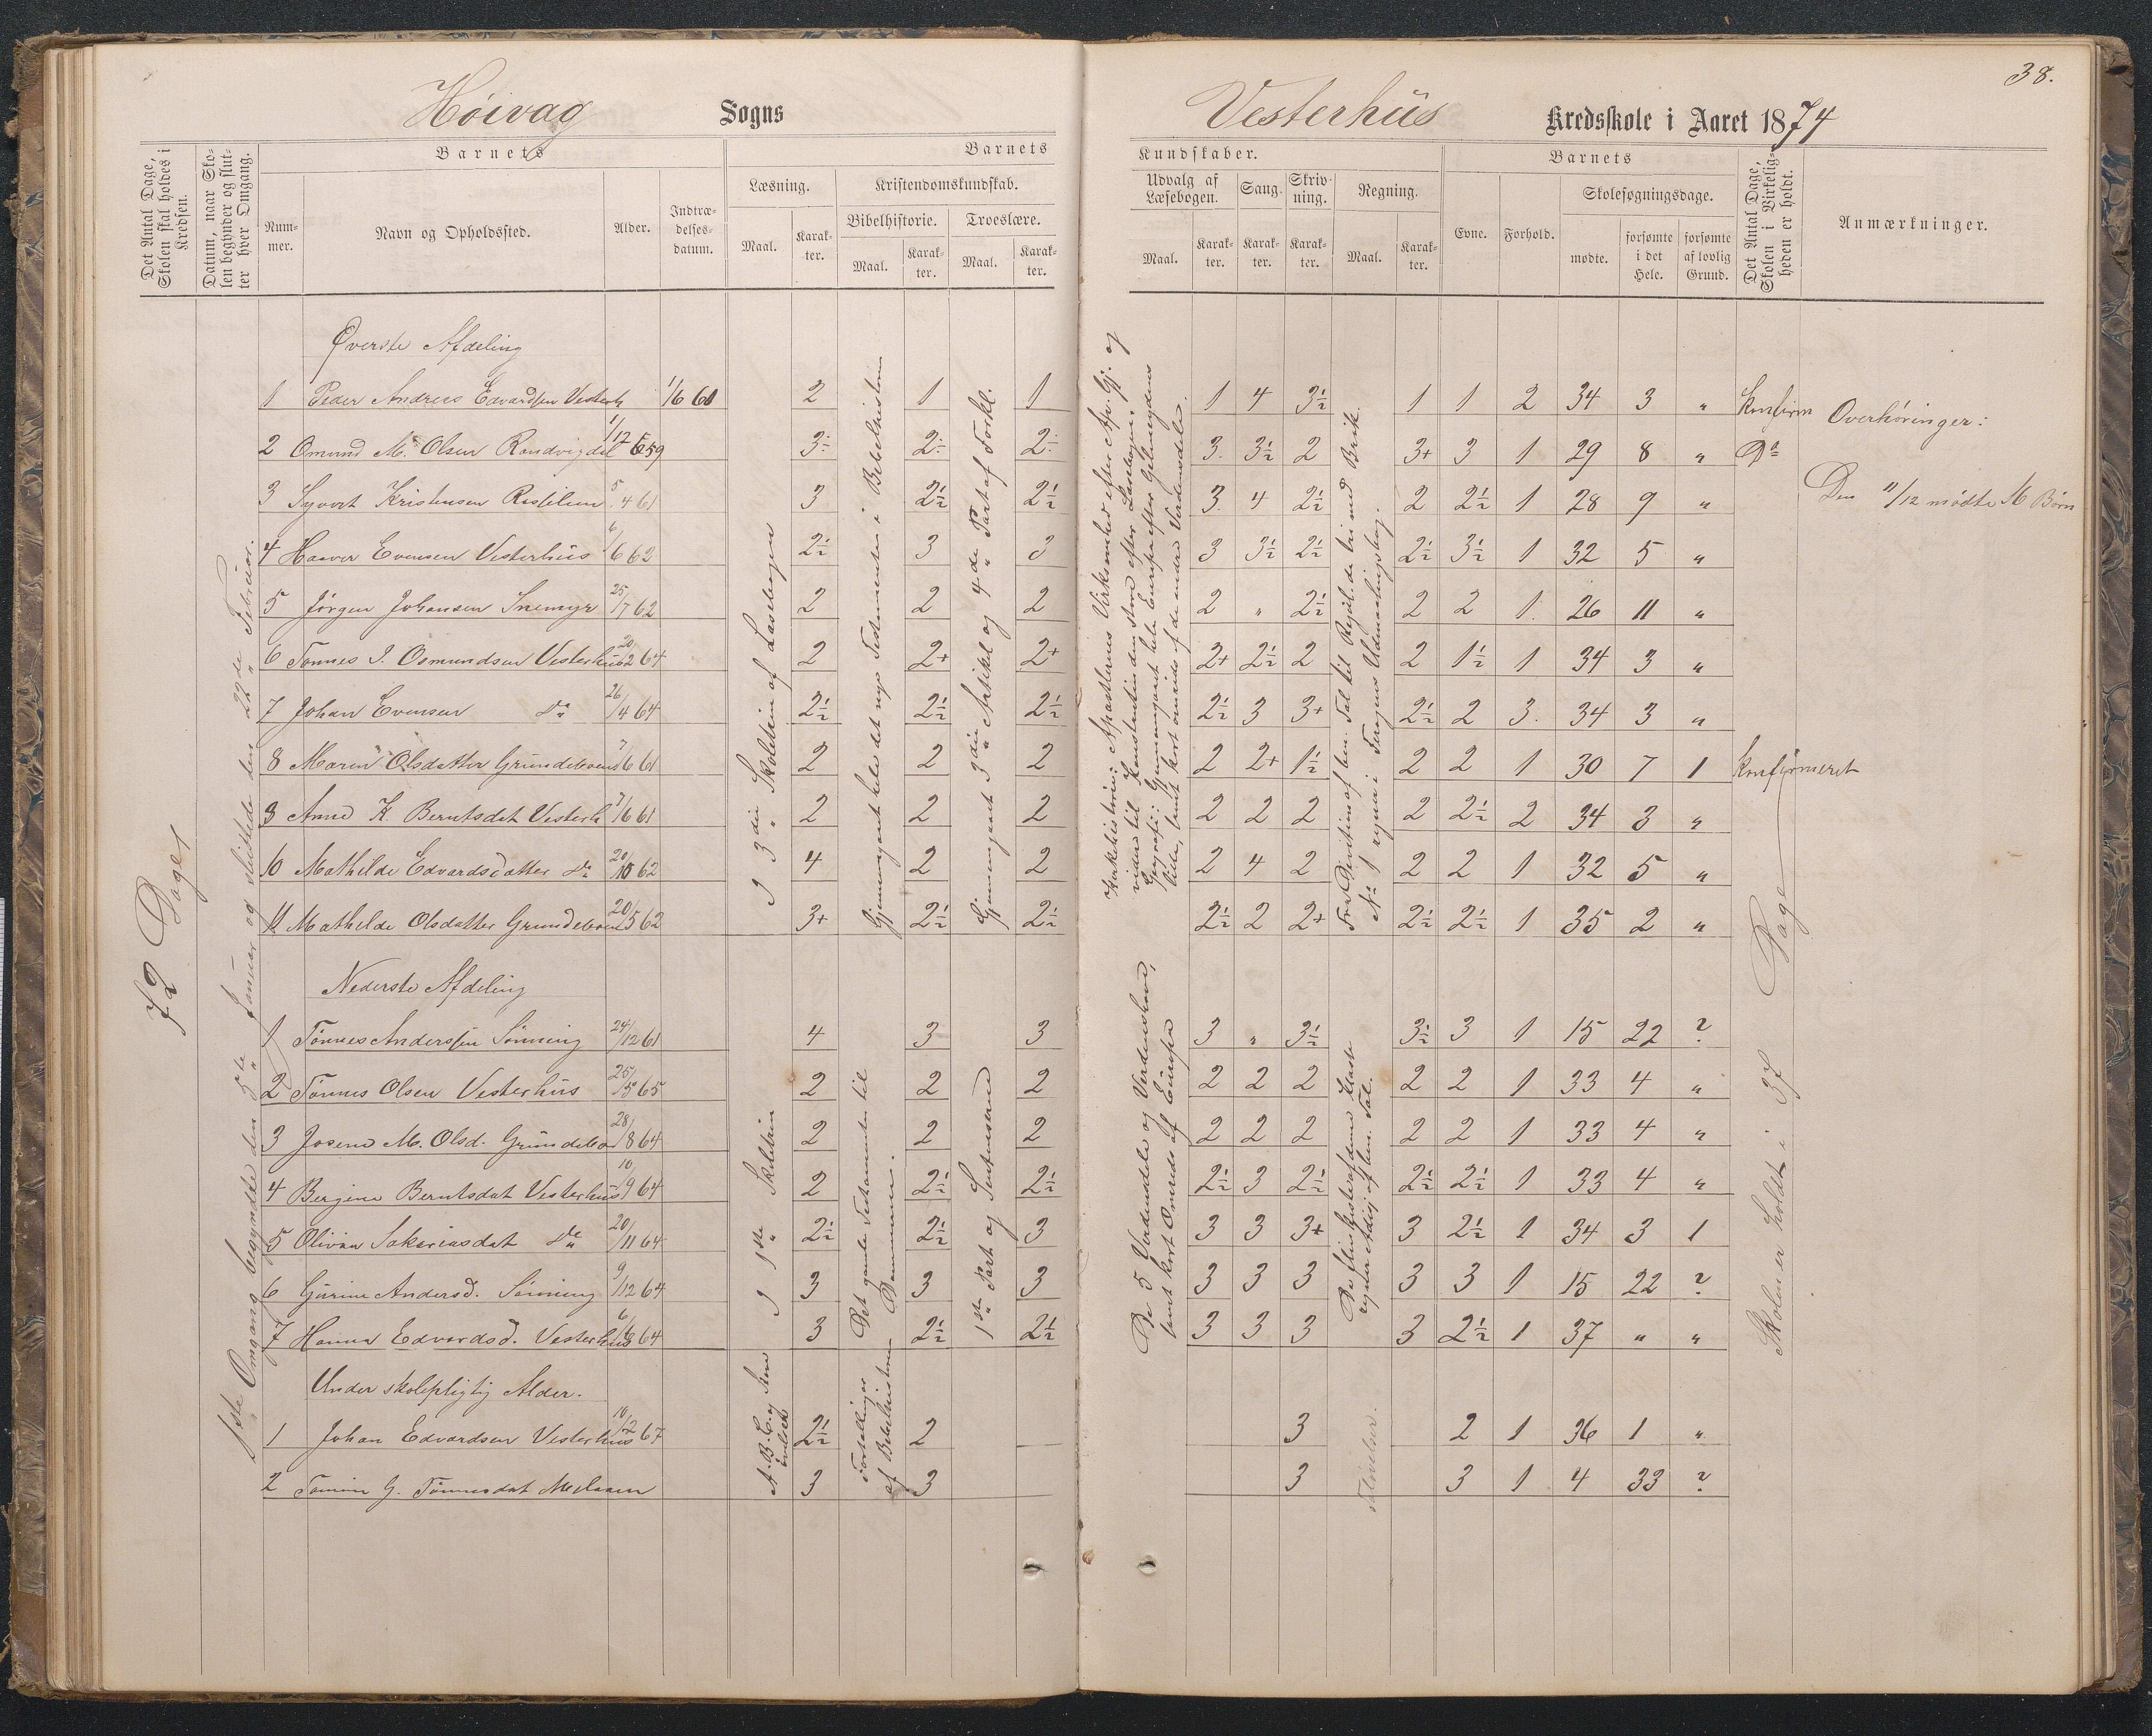 38.
Höivag Sogns Vesterhüs Kredsskole i Aaret 1874
Det Antal Dage, Skolen skal holdes i Kredsen.
Datum, naar Skolen begynder og slutter hver Omgang.
Barnets
Nummer.
Navn og Opholdssted.
Alder.
Indtrædelsesdatum.
Barnets
Læsning.
Maal.
Karakter.
Kristendomskundskab.
Bibelhistorie.
Maal.
Karakter.
Troeslære.
Maal.
Karakter.
Kundskaber.
Udvalg af Læsebogen.
Maal.
Karakter.
Sang.
Karakter.
Skrivning.
Karakter.
Regning.
Maal.
Karakter.
Barnets
Evne.
Forhold.
Skolesøgningsdage.
mødte.
forsømte i det Hele.
forsømte af lovlig Grund.
Det Antal Dage, Skolen i Virkeligheden er holdt.
Anmærkninger.
72 Dage
1ste Omgang begyndte den 5te Januar og sluttede den 27de Februar.
Øverste Afdeling
1 Peder Andreas Edvardsen Vesterh 1/6 60 2 1 1 1 4 3½ 1 1 2 34 3 " Konfirm
2 Omund M. Olsen Randvigdal 1/12 59 3÷ 2÷ 2÷ 3. 3½ 2 3+ 3 1 29 8 " Do
3 Syvert Kristensen 5/4 61 3 2½ 2½ 3. 4 2½ 2 2½ 1 28 9 "
4 Haaver Evensen Vesterhüs 6/6 62 2½ 3 3 3 3½ 2½ 2½ 3½ 1 32 5 "
5 Jørgen Johansen Snemyr 25/7 62 2 2 2 2 " 2½ 2 2 1 26 11 "
6 Tønnes J. Osmundsen Vesterhüs 20/2 64 2 2+ 2+ 2+ 2½ 2 2 1½ 1 34 3 "
7 Johan Evensen do 26/4 64 2½ 2½ 2½ 2½ 3 3+ 2½ 2 3. 34 3 "
8 Maren Olsdatter Grundesven 7/6 61 2 2 2 2 2+ 1½ 2 2 1 30 7 1 Konfirmeret
9 Anne K. Berntsdat Vesterh 7/6 61 2 2 2 2 2 2 2 2½ 2 34 3 "
10 Mathilde Edvardsdatter do 20/10 62 4 2 2 2 4 2 2 2 1 32 5 "
11 Mathilde Olsdatter Grundesven 20/5 62 3+ 2½ 2½ 2½ 2 2+ 2½ 2½ 1 35 2 "
I 3die Skoletrin af Læsebogen
Gjennemgaaet hele det nye Testamentet i Bibelhistorien
Gjennemgaaet 3die Artikel og 4de Part af Forkl.
Overhøringer:
Den 11/12 mødte 11 Børn
Nederste Afdeling
1 Tønnes Anderssen Sønning 24/12 61 4 3 3 3 " 3½ 3½ 3 1 15 22 ?
2 Tønnes Olsen Vesterhüs 25/5 65 2 2 2 2 2 2 2 2 1 33 4 "
3 Josene M. Olsd. Grundesven 28/8 64 2 2 2 2 2 2 2 2 1 33 4 "
4 Bergine Berntsdat Vesterhüs 10/9 64 2 2½ 2½ 2½ 3 2½ 2½ 2½ 1 33 4 "
5 Olivia Sakariasdat do 20/11 64 2½ 2½ 3 3 3 3+ 3 2½ 1 34 3 1
6 Gürine Andersd. Sønning 9/12 64 3 3 3 3 3 3 3 3 1 15 22 ?
7 Hanna Edvardsd. Vesterhüs 64 3 2½ 2½ 3 3 3 3 2½ 1 37 " "
I 1ste Skoletrin
Det gamle Testamentet til Dommerne.
1ste Part og Sentensern
De 5 Verdensdele og Verdenshave, samt kort Omrids af Európa
Skolen er holdt i 37 Dage
Under skolepligtig Alder.
1 Johan Edvardsen Vesterhüs 10/12 67 2½ 2 — 3 2 1 36 1 "
2 G. Tønnesdat 3 3 — 3 3 1 4 33 ?
Fortællinger af Bibelhistorien
Taløvelser.